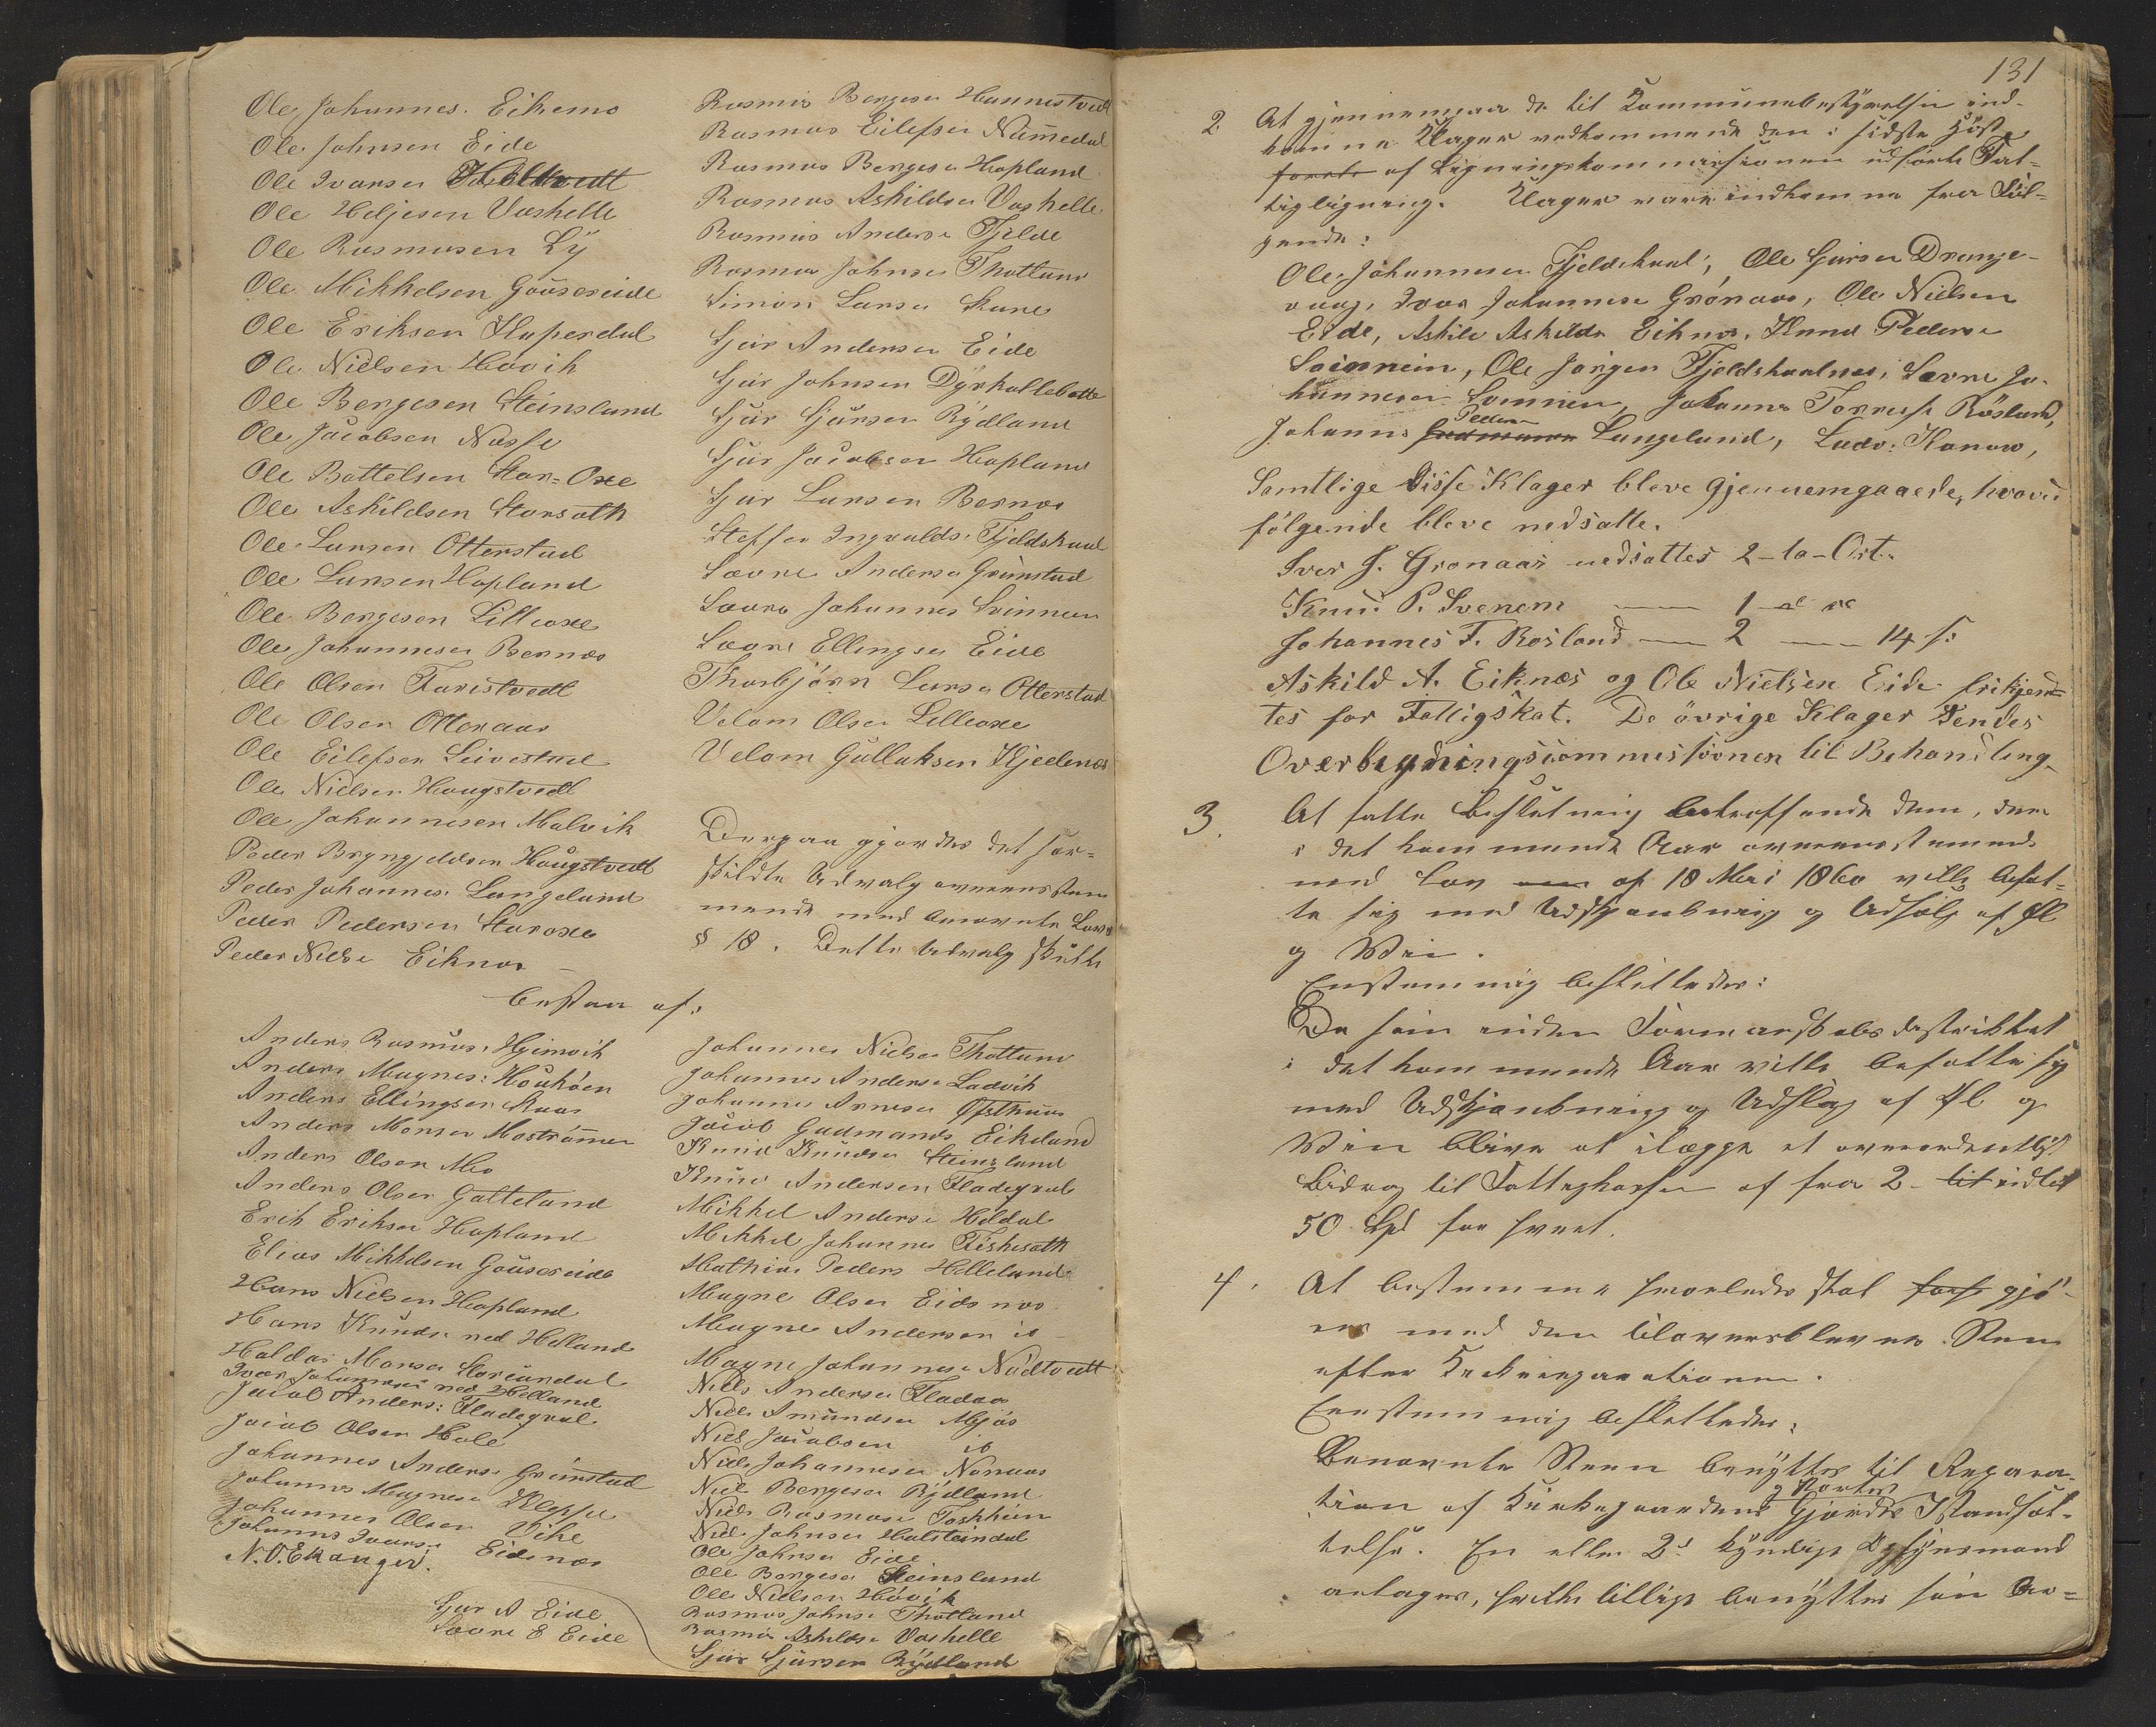 Ole Johannes. Eikemo
Ole Johnsen Eide
Ole Ivarsen
Ole Heljesen Vashelle
Ole Rasmusen Lÿ
Ole Mikkelsen Gouscreide
Ole Eriksen Kuperdal
Ole Nielsen Hovik
Ole Bergesen Steinsland
Ole Jacobsen Nusse
Ole Bottelsen Stor-Oxe
Ole Askildsen Storsalh
Ole Larsen Otterstad
Ole Larsen Hopland
Ole Bergesen Lilleoxe
Ole Johannesen Bernæs
Ole Olsen Taristvedt
Ole Olsen Otteraas
Ole Eilefsen Leivestad
Ole Nielsen Hougstvedt
Ole Johannesen Malvik
Peder Brÿngjeldsen Hougstvedt
Peder Johannes. Langeland
Peder Pedersen Storoxe
Peder Nielse Eiknæs
Rasmus Bergesen Hannestvedt
Rasmus Eilefsen Nam̅edal
Rasmus Bergesen Hopland
Rasmus Askildsen Vashelle
Rasmus Anderse Tjelde
Rasmus Johnsen Thotland
Simon Larsen Skare
Sjur Andersen Eide
Sjur Johnsen Dÿrkollebotn
Sjur Sjursen Rÿdland
Sjur Jacobsen Hopland
Sjur Larsen Bernæs
Steffen Ingvalds. Fjeldskaal
Sævre Andersen Grimstad
Sævre Johannes Svinnem
Sævre Ellingsen Eide
Thorbjørn Larsen Otterstad
Velom Olsen Lilleoxe
Velom Gullaksen Kjeilenæs
Derpaa gjordes det for-
skildte Udvalg overensstem
mende med benævnte Lovs
§ 18. Dette Udvalg skulle
bestaa af:
Anders Rasmus. Hjeimvik
Anders Magnes: Houkøen
Anders Ellingsen Raas
Anders Monsen Mostrøm̅en
Anders Olsen Mo
Anders Olsen Gatteland
Erik Eriksen Hopland
Elias Mikkelsen Gouscreide
Hans Nielsen Hopland
Hans Knuds. ned Helland
Haldor Monsen Storeurdal
Ivar Johannesen ned Helland
Jacob Anders: Fladegval
Jacob Olsen Hole
Johannes Anders. Grimstad
Johannes Magnese Kleppe
Johannes Olsen Vike
Johannes Ivarse Eidsnæs
N. O. Ekanger.
Sjur A Eide
Sævre E Eide
Johannes Nielsen Thotland
Johannes Anderse Ladvik
Johannes Arnesen Øfsthuus
Jacob Gudmunds. Eikeland
Knud Knudsen Steinsland
Knud Andersen Fladegval
Mikkel Anderse Heldal
Mikkel Johannes Fiskesæth
Mathias Peders Helleland
Magne Olsen Eidsnæs
Magne Andersen io
Magne Johannese Nødtvedt
Niels Andersen Fladaas
Niels Amundsen Mjøs
Niels Jacobsen io
Niels Johannesen Noraas
Niels Bergesen Rÿdland
Niels Rasmuse Toskhein
Niels Johnsen Halsteindal
Ole Johnsen Eide
Ole Bergesen Steinsland
Ole Nielsen Høvik
Rasmus Johnse Thotland
Rasmus Askildse Vashelle
Sjur Sjursen Rÿdland
131
2 At gjennemgaa de til Kommunebestÿrelsen ind-
komne Klager vedkommende den i sidste Høst
af Ligningskommissionen udførte Fat-
tigligning. Klager vare indkomne fra Føl-
gende:
Ole Johannesen Fjeldskaal, Ole Sjursen Drange-
vaag, Ivar Johannese Grønaas, Ole Nielsen
Eide, Askild Askilds Eiknæs, Knud Pederse
Svinneim, Ole Jørgen Fjeldskaalnes, Sævre Jo-
hannesen Svinnem, Johannes Torresse Røsland,
Johannes Peders Langeland, Ludv: Konow,
Samtlige disse Klager bleve gjennemgaaede, hvorved
følgende bleve nedsatte.
Iver J. Gronaas nedsattes 2 – to – Ort.
Knud P. Svenem — 1 – et
Johannes T. Rosland — 2 — 14 s:
Askild A. Eiknæs og Ole Nielsen Eide frikjend-
tes for Fattigskat. De övrige Klager sendes
Overligningscommissionen til Behandling.
3. At fatte Beslutning betreffende dem, der
i det kommende Aar overensstemmende
med Lov af 18 Mai 1860 ville befat-
te sig med Udskjænkning og Udsalg af Øl
og Viin.
Enstemmig besluttedes:
De som inden Formandskabsdistriktet
i det kommende Aar ville befatte sig
med Udskjænkning og Udsalg af Øl og
Viin blive at ilægge et overordentligt
Bidrag til Fattigkassen af fra 2 – til indtil
50 Spd for hvert.
4. At bestemme hvorledes skal forh gjø-
res med den tiloversblevne Steen
efter Kirkereparationen.
Eenstemmig besluttedes:
Benævnte Steen benÿttes til Repara-
tion af Kirkegaardens Gjærdes og Portes Istandsæt-
telse. En eller 2de kÿndige Opsÿnsmænd
antages, hvilke tillige benÿttes som Ar-